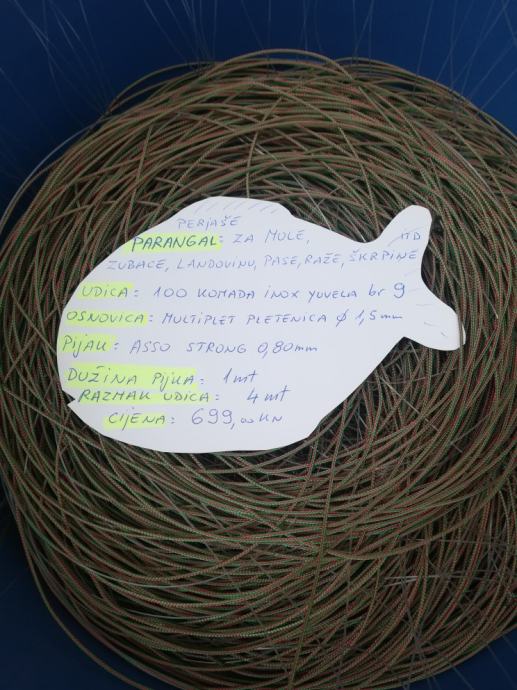 PERJAŠE
PARANGAL: ZA MOLE, ITD
ZUBACE, LANDOVINU, PASE, RAŽE, ŠKRPINE
UDICA: 100 KOMADA INOX YUVELA br 9
OSNOVICA: MULTIPLET PLETENICA Ø 1,5mm
PIJAK: ASSO STRONG 0,80mm
DUŽINA PIJKA: 1 mt
RAZMAK UDICA: 4 mt
CIJENA: 699,00 KN